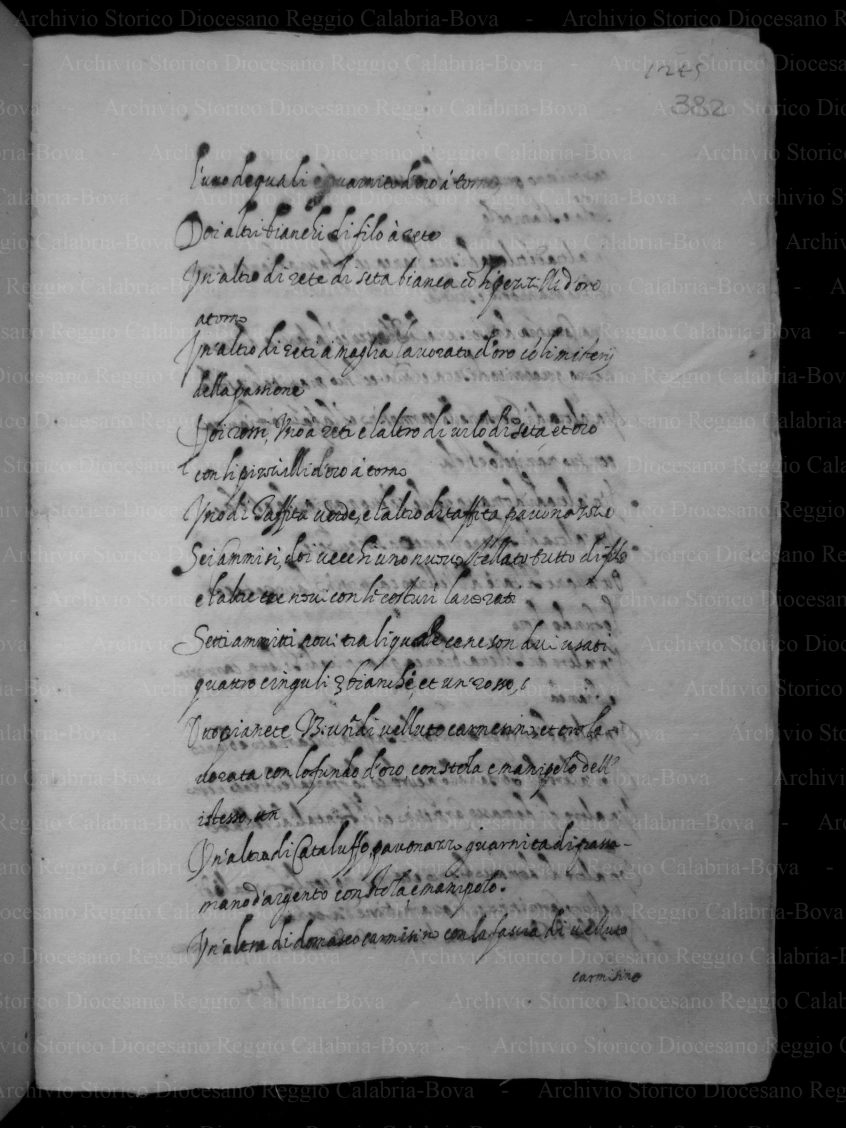 1245
382
l'uno de quali è guarnito d'oro à torno
Doi altri bianchi di filo à rete
Un'altro di rete di seta bianca cõ li perzilli d'oro
atorno
Un'altro di reti à maglia lavorato d'oro cõ li misterij
della passione
Doi rossi, Uno a reti e l'altro di velo di seta et oro
con li pizzilli d'oro à torno
Uno di Taffità verde, e l'altro di taffità pavonazzo
Sei ammiti, doi vecchi uno novo stellato tutto di filo
e l'altre tre novi con li costuri lavorati
Setti ammitti novi tra li quali ce ne son dui usati
quattro cinguli 3 bianchi, et un rosso,
Due pianete di velluto carmesino, et oro la-
vorata con lo fundo d'oro con stola e manipolo dell'
istesso,
Un'altra di Cataluffo pavonazzo guarnita di passa-
mano d'argento con stola, e manipolo.
Un'altra di domasco carmisino con la fascia di velluto
carmisino